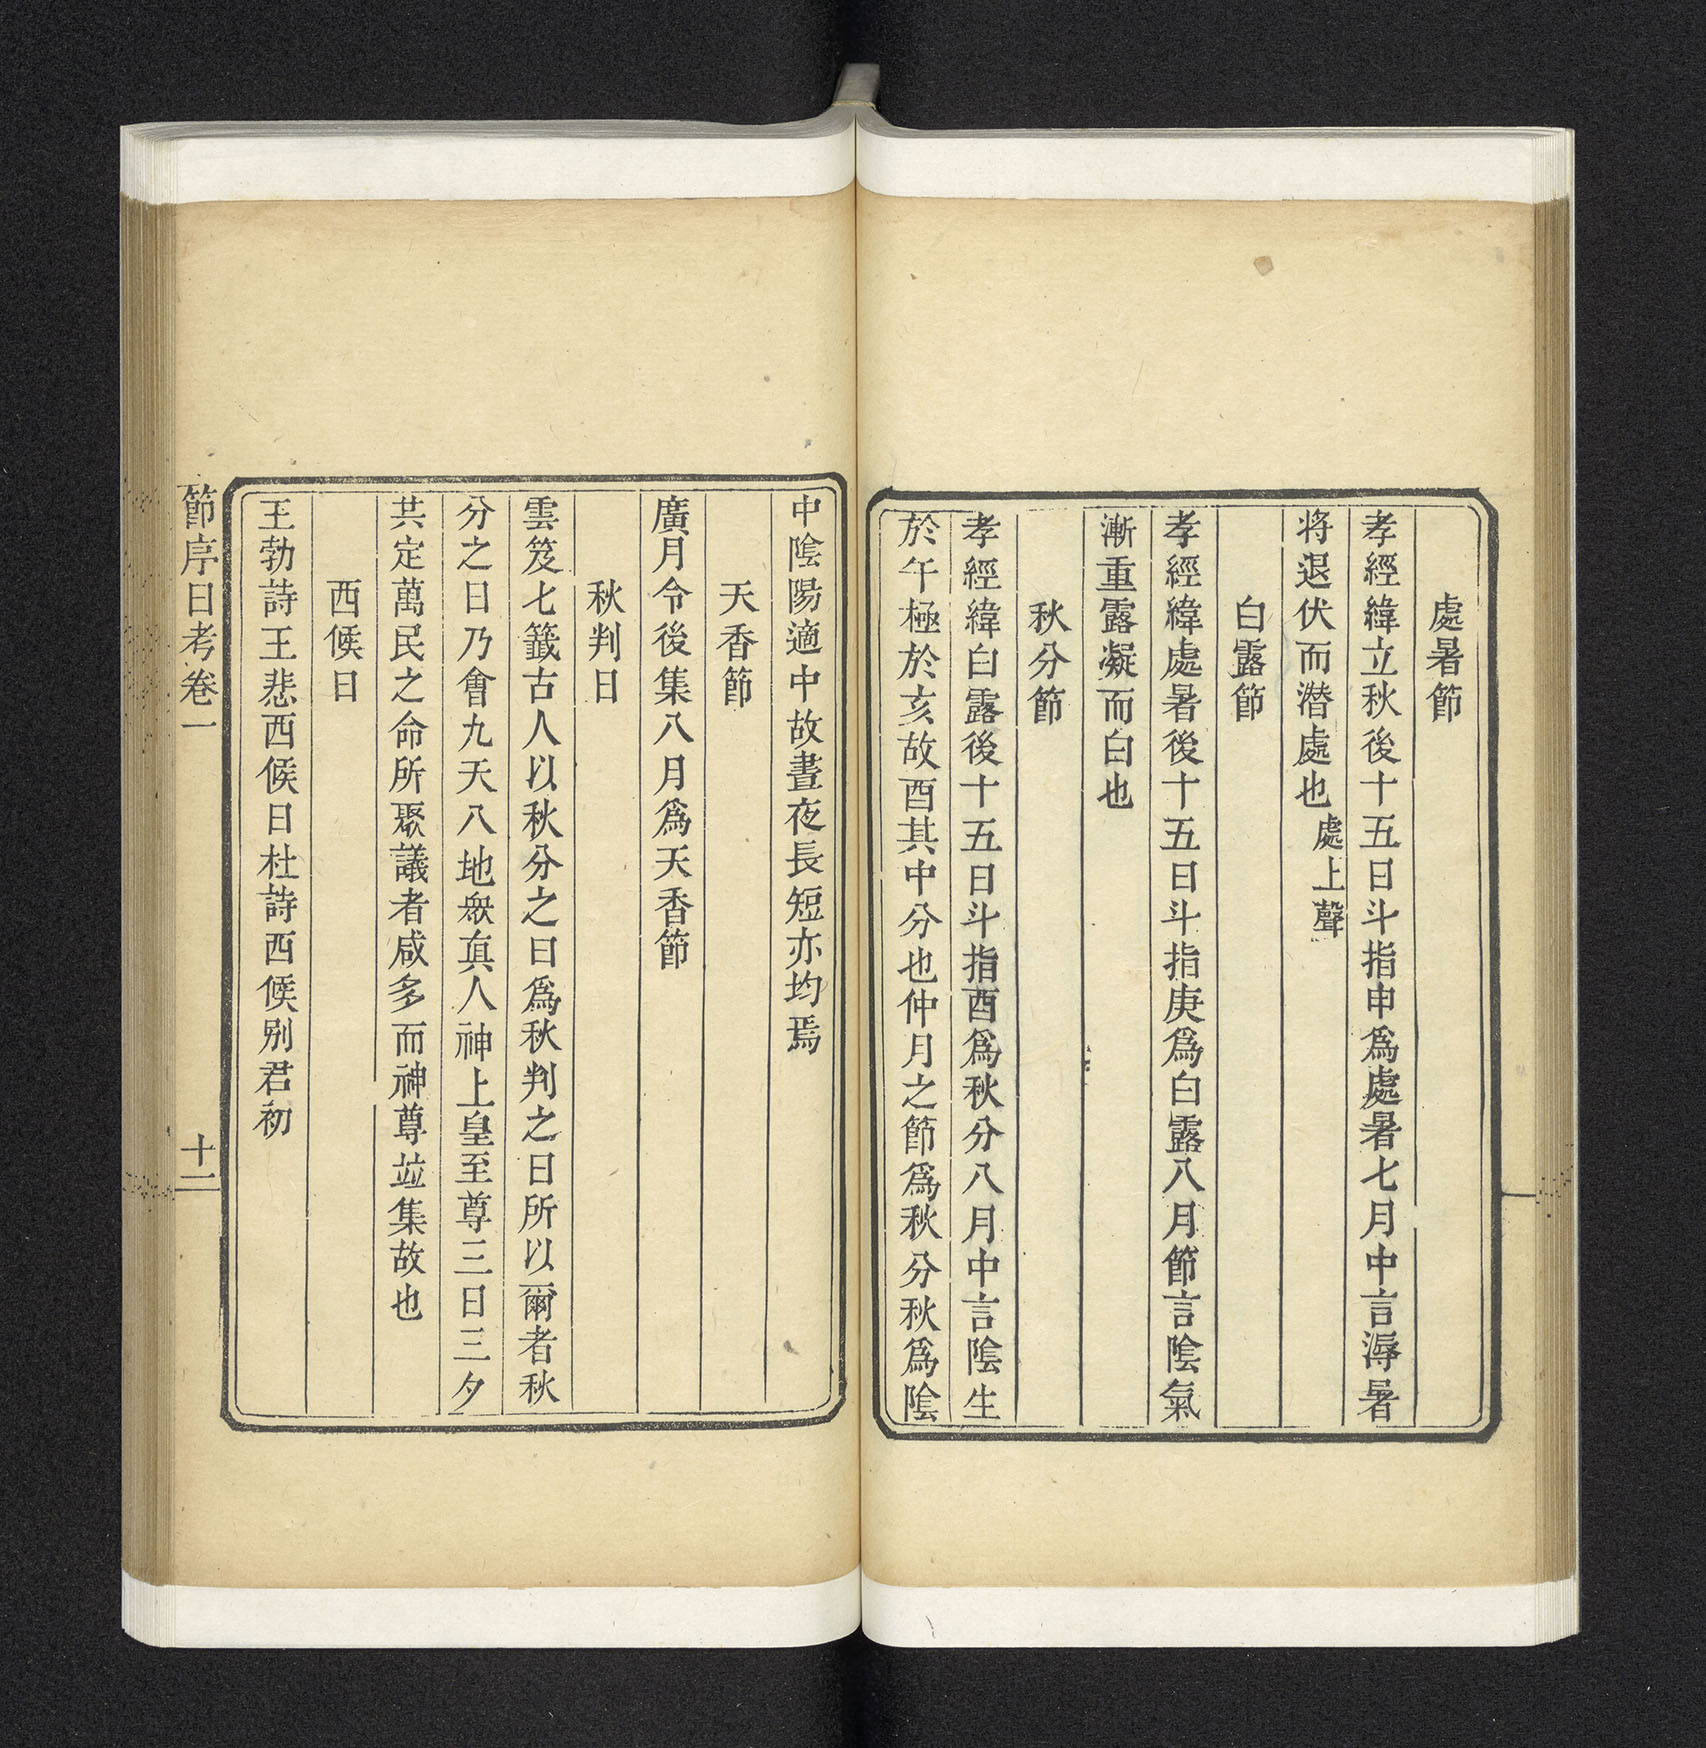 處暑節
孝經緯立秋後十五日斗指申為處暑七月中言溽暑
將退伏而潜處也處上聲
白露節
孝經緯處暑後十五日斗指庚為白露八月節言陰氣
漸重露凝而白也
秋分節
孝經緯白露後十五日斗指酉為秋分八月中言陰生
於午極於亥故酉其中分也仲月之節為秋分秋為陰
中陰陽適中故晝夜長短亦均焉
天香節
廣月令後集八月為天香節
秋判日
雲笈七籤古人以秋分之日為秋判之日所以爾者秋
分之日乃會九天八地眾眞人神上皇至尊三日三夕
共定萬民之命所聚議者咸多而神尊竝集故也
西候日
王勃詩王悲西候日杜詩西候别君初
節序日考卷一 十二